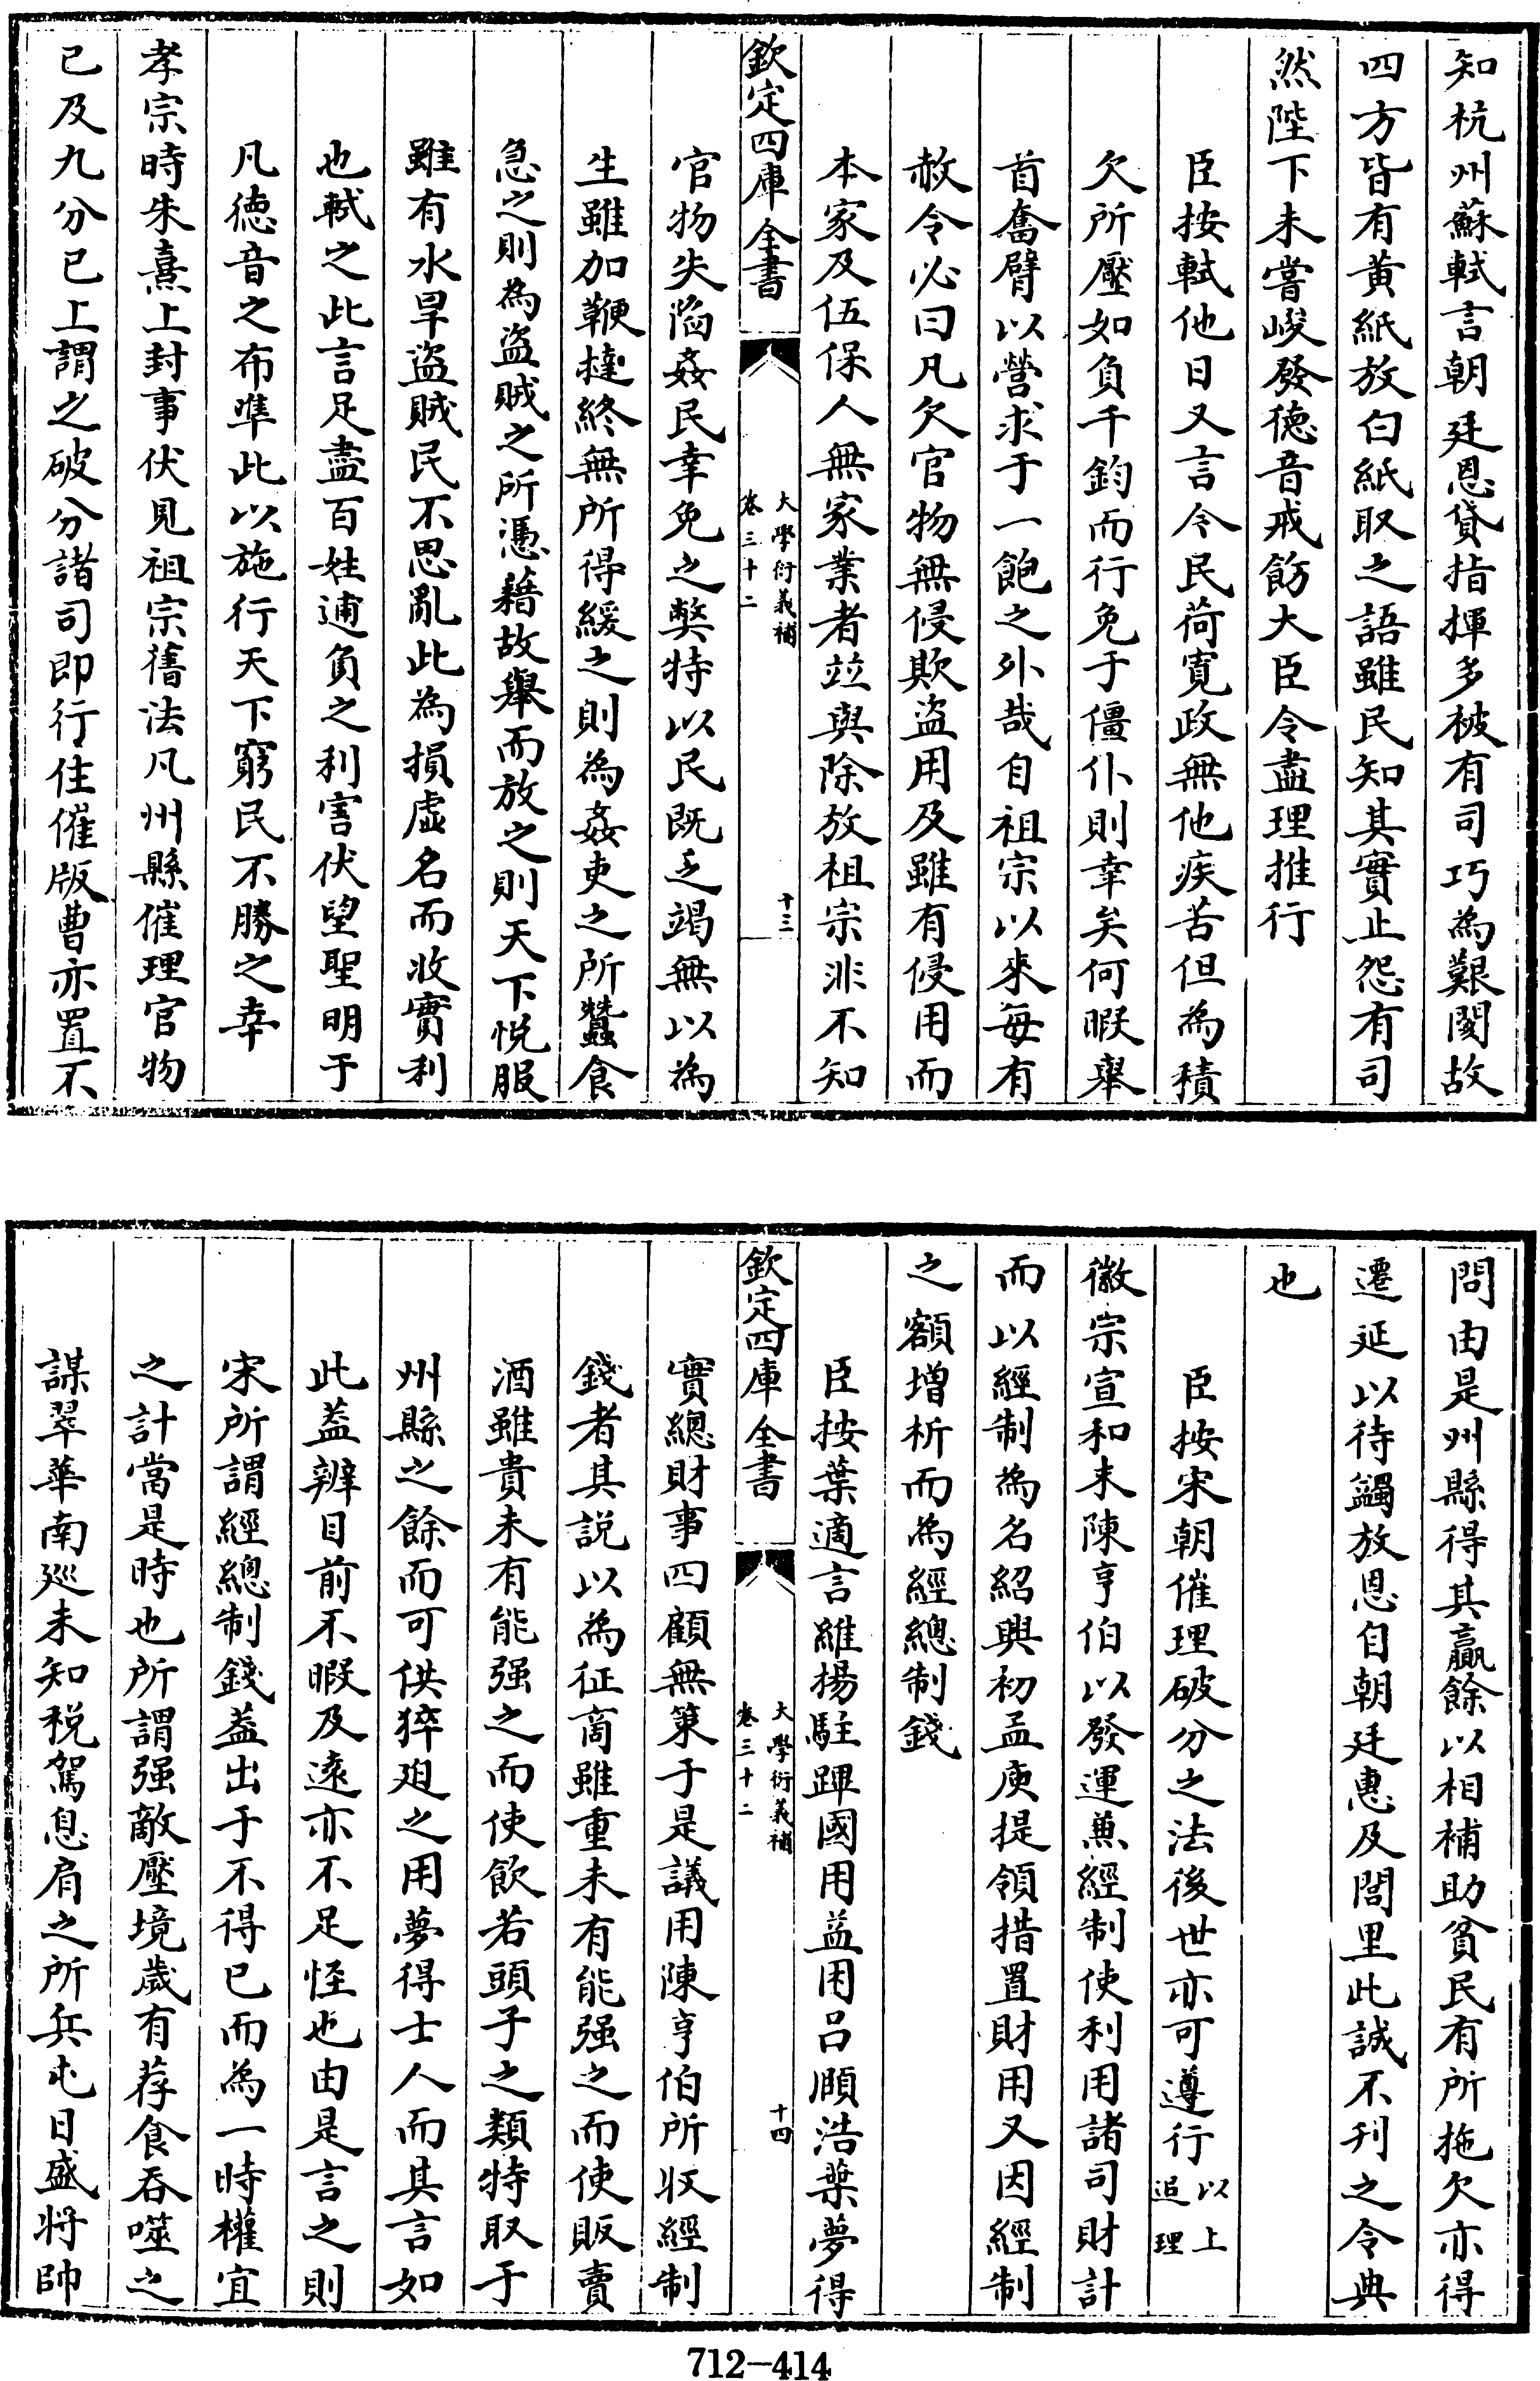 知杭州蘇軾言朝廷恩貸指揮多被有司巧為艱閡故
四方皆有黄紙放白紙取之語雖民知其實止怨有司
然陛下未嘗峻發徳音戒飭大臣令盡理推行
臣按軾他日又言今民荷寛政無他疾苦但為積
欠所壓如負千鈞而行免于僵仆則幸矣何暇舉
首奮臂以營求于一飽之外哉自祖宗以來每有
赦令必曰凡欠官物無侵欺盗用及雖有侵用而
本家及伍保人無家業者並與除放祖宗非不知
欽定四庫全書
大學衍義補
卷三十二
十三
官物失䧟姦民幸免之弊特以民既乏竭無以為
生雖加鞭撻終無所得緩之則為姦吏之所蠶食
急之則為盗賊之所憑藉故舉而放之則天下悦服
雖有水旱盗賊民不思亂此為損虚名而收實利
也軾之此言足盡百姓逋負之利害伏望聖明于
凡徳音之布凖此以施行天下窮民不勝之幸
孝宗時朱熹上封事伏見祖宗舊法凡州縣催理官物
已及九分已上謂之破分諸司即行住催版曹亦置不
問由是州縣得其贏餘以相補助貧民有所拖欠亦得
遷延以待蠲放恩自朝廷惠及閭里此誠不刋之令典
也
臣按宋朝催理破分之法後世亦可遵行以上追理
徽宗宣和末陳亨伯以發運兼經制使利用諸司財計
而以經制為名紹興初孟庾提領措置財用又因經制
之額增析而為經總制錢
臣按葉適言維揚駐蹕國用益困吕頤浩葉夢得
欽定四庫全書
大學衍義補
卷三十二
十四
實總財事四顧無策于是議用陳亨伯所收經制
錢者其説以為征商雖重未有能强之而使販賣
酒雖貴未有能强之而使飲若頭子之類特取于
州縣之餘而可供猝廹之用夢得士人而其言如
此葢辨目前不暇及逺亦不足怪也由是言之則
宋所謂經總制錢葢出于不得已而為一時權宜
之計當是時也所謂强敵壓境歲有荐食吞噬之
謀翠華南廵未知税駕息肩之所兵屯日盛将帥
712-414